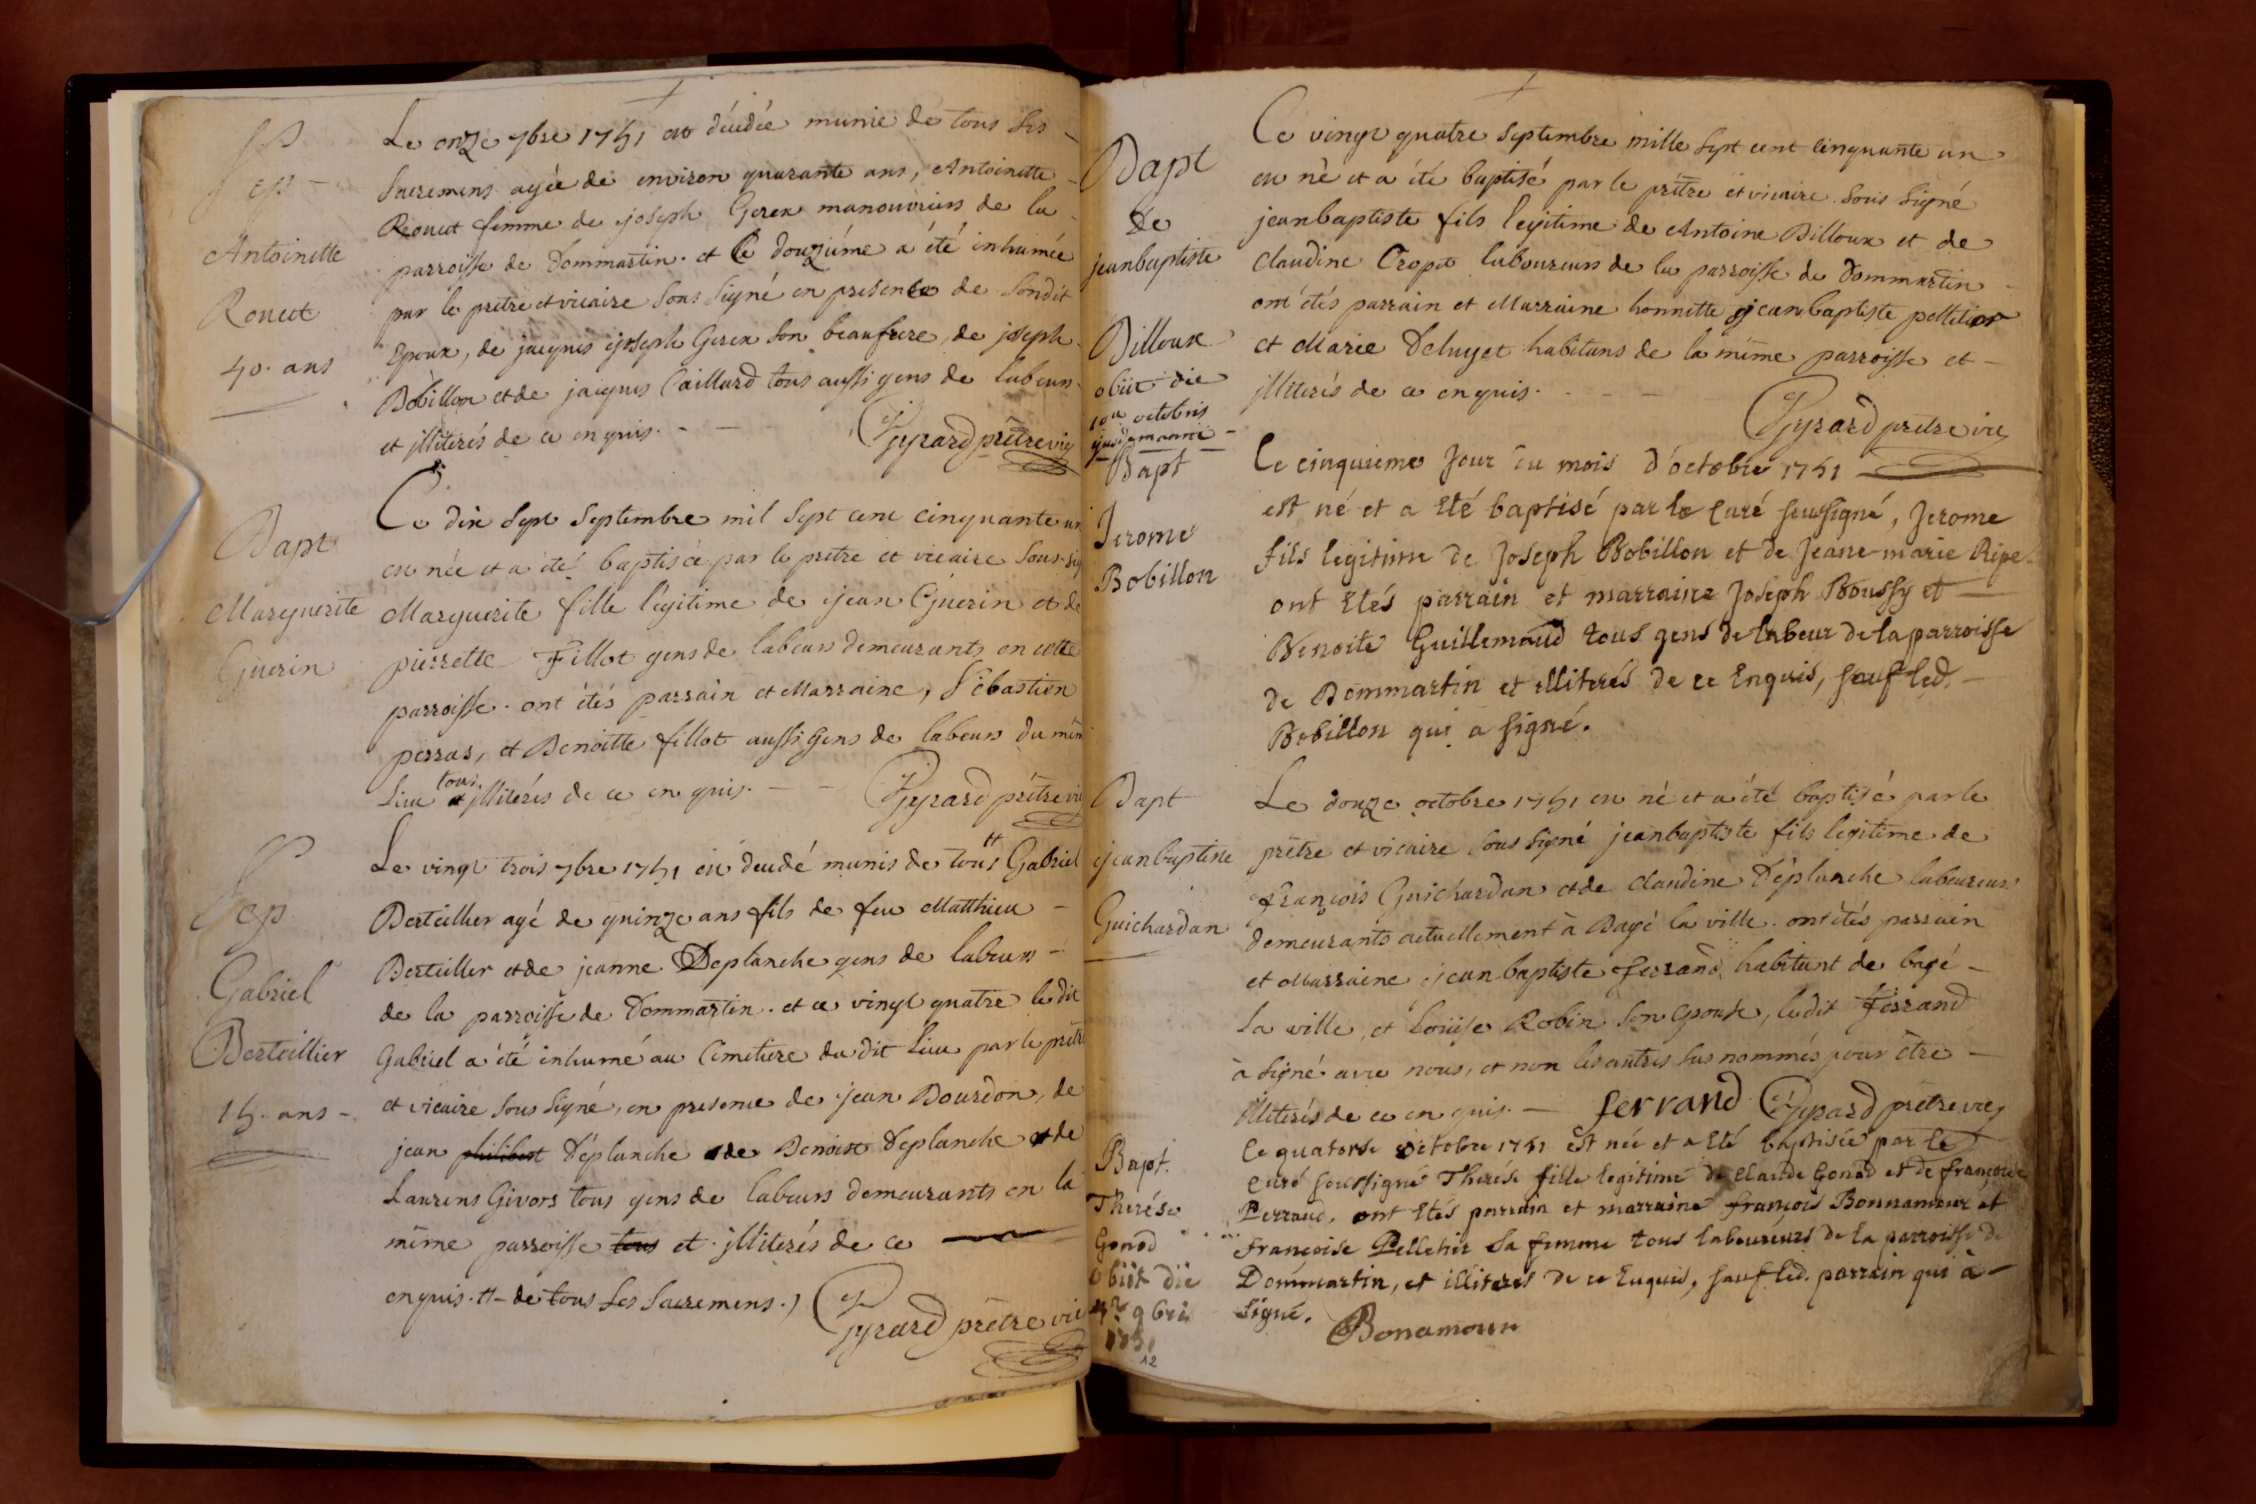 Sep
Antoinette
Rouet
40. ans
Le onze 7bre 1751 est décédée munie de tous ses
sacremens agée de environ quarante ans, Antoinette
Rouet femme de joseph Gerex manouvriers de la
parroisse de Dommartin. et le douzième a été inhumée
par le pretre et vicaire sous signé en presence de sondit
Epoux, de jacques joseph Gerex son beaufrere, de joseph
Bobillon et de jacques Caillard tous aussi gens de labeurs
et illiterés de ce enquis. - -
Gyrard prêtre vic
Bapt
Marguerite
Guerin
Ce dix sept septembre mil sept cent cinquante un
est née et a été baptisée par le pretre et vicaire sous-sig
Marguerite fille legitime de jean Guerin et de
pierrette Fillot gens de labeurs demeurants en cette
parroisse. ont étés parrain et Marraine, Sébastien
perras, et Benoitte fillot aussi gens de labeurs du mêm
Lieu tous illiterés de ce enquis. - -
Gyrard prêtre vic
Sep
Gabriel
Berteillier
15. ans -
Le vingt trois 7bre 1751 est decedé munis de tous tt Gabriel
Berteillier agé de quinze ans fils de feu Matthieu -
Berteillier et de jeanne Deplanche gens de labeurs -
de la parroisse de Dommartin. et ce vingt quatre le dit
Gabriel a été inhumé au Cimetiere du dit Lieu par le prêtre
et vicaire sous signé, en presence de jean Bourdon, de
jean philibert Déplanche de Benoist Deplanche et de
Laurens Givors tous gens de labeurs demeurants en la
même parroisse tous et illiterés de ce
enquis. tt - de tous ses sacremens.)
Gyrard prêtre vic
Bapt
de
jeanbaptiste
Billoux
obiit die
10a octobris
ejusdem anni -
Ce vingt quatre septembre mille sept cent cinquante un
est né et a été baptisé par le prêtre et vicaire sous signé
jeanbaptiste fils legitime de Antoine Billoux et de
Claudine Cropet laboureurs de la parroisse de Dommartin
ont étés parrain et Marraine honnette jeanbaptiste pelletier
et Marie Deluget habitans de la même parroisse et -
illiterés de ce enquis. - - -
Gyrard pretre vic
Bapt
Jerome
Bobillon
Le cinquieme Jour du mois d'octobre 1751
est né et a Eté baptisé par le Curé soussigné, Jerome
fils legitime de Joseph Bobillon et de Jeane-marie Ripe
ont Etés parrain et marraine Joseph Boussy et
Benoite Guillemaud tous gens de labeur de la parroisse
de Dommartin et illiterés de ce Enquis, sauf led. -
Bobillon qui a signé.
Bapt
jeanbaptiste
Guichardan
Le douze octobre 1751 est né et a été baptisé par le
prêtre et vicaire sous signé jeanbaptiste fils legitime de
françois Guichardan et de Claudine Déplanche laboureurs
demeurants actuellement à Bagé la ville. ont étés parrain
et Marraine jeanbaptiste ferrand habitant de bagé -
la ville, et Loüise Robin son epouse, ledit Ferrand
à signé avec nous, et non les autres sus nommés pour être -
illiterés de ce enquis. - ferrand Gyrard prêtre vic
Bapt.
Therése
Gonod
obiit die
4a 9bris
1751
12
Le quatorse octobre 1751 Est née et a Eté baptisée par le
Curé soussigné Therése fille legitime de Claude Gonod et de françoise
Perraud, ont Etés parrain et marraine françois Bonnamour et
françoise Pelletier sa femme tous laboureurs de la parroisse de
Dommartin, et illiterés de ce Enquis, sauf led. parrain qui à -
signé.
Bonamour